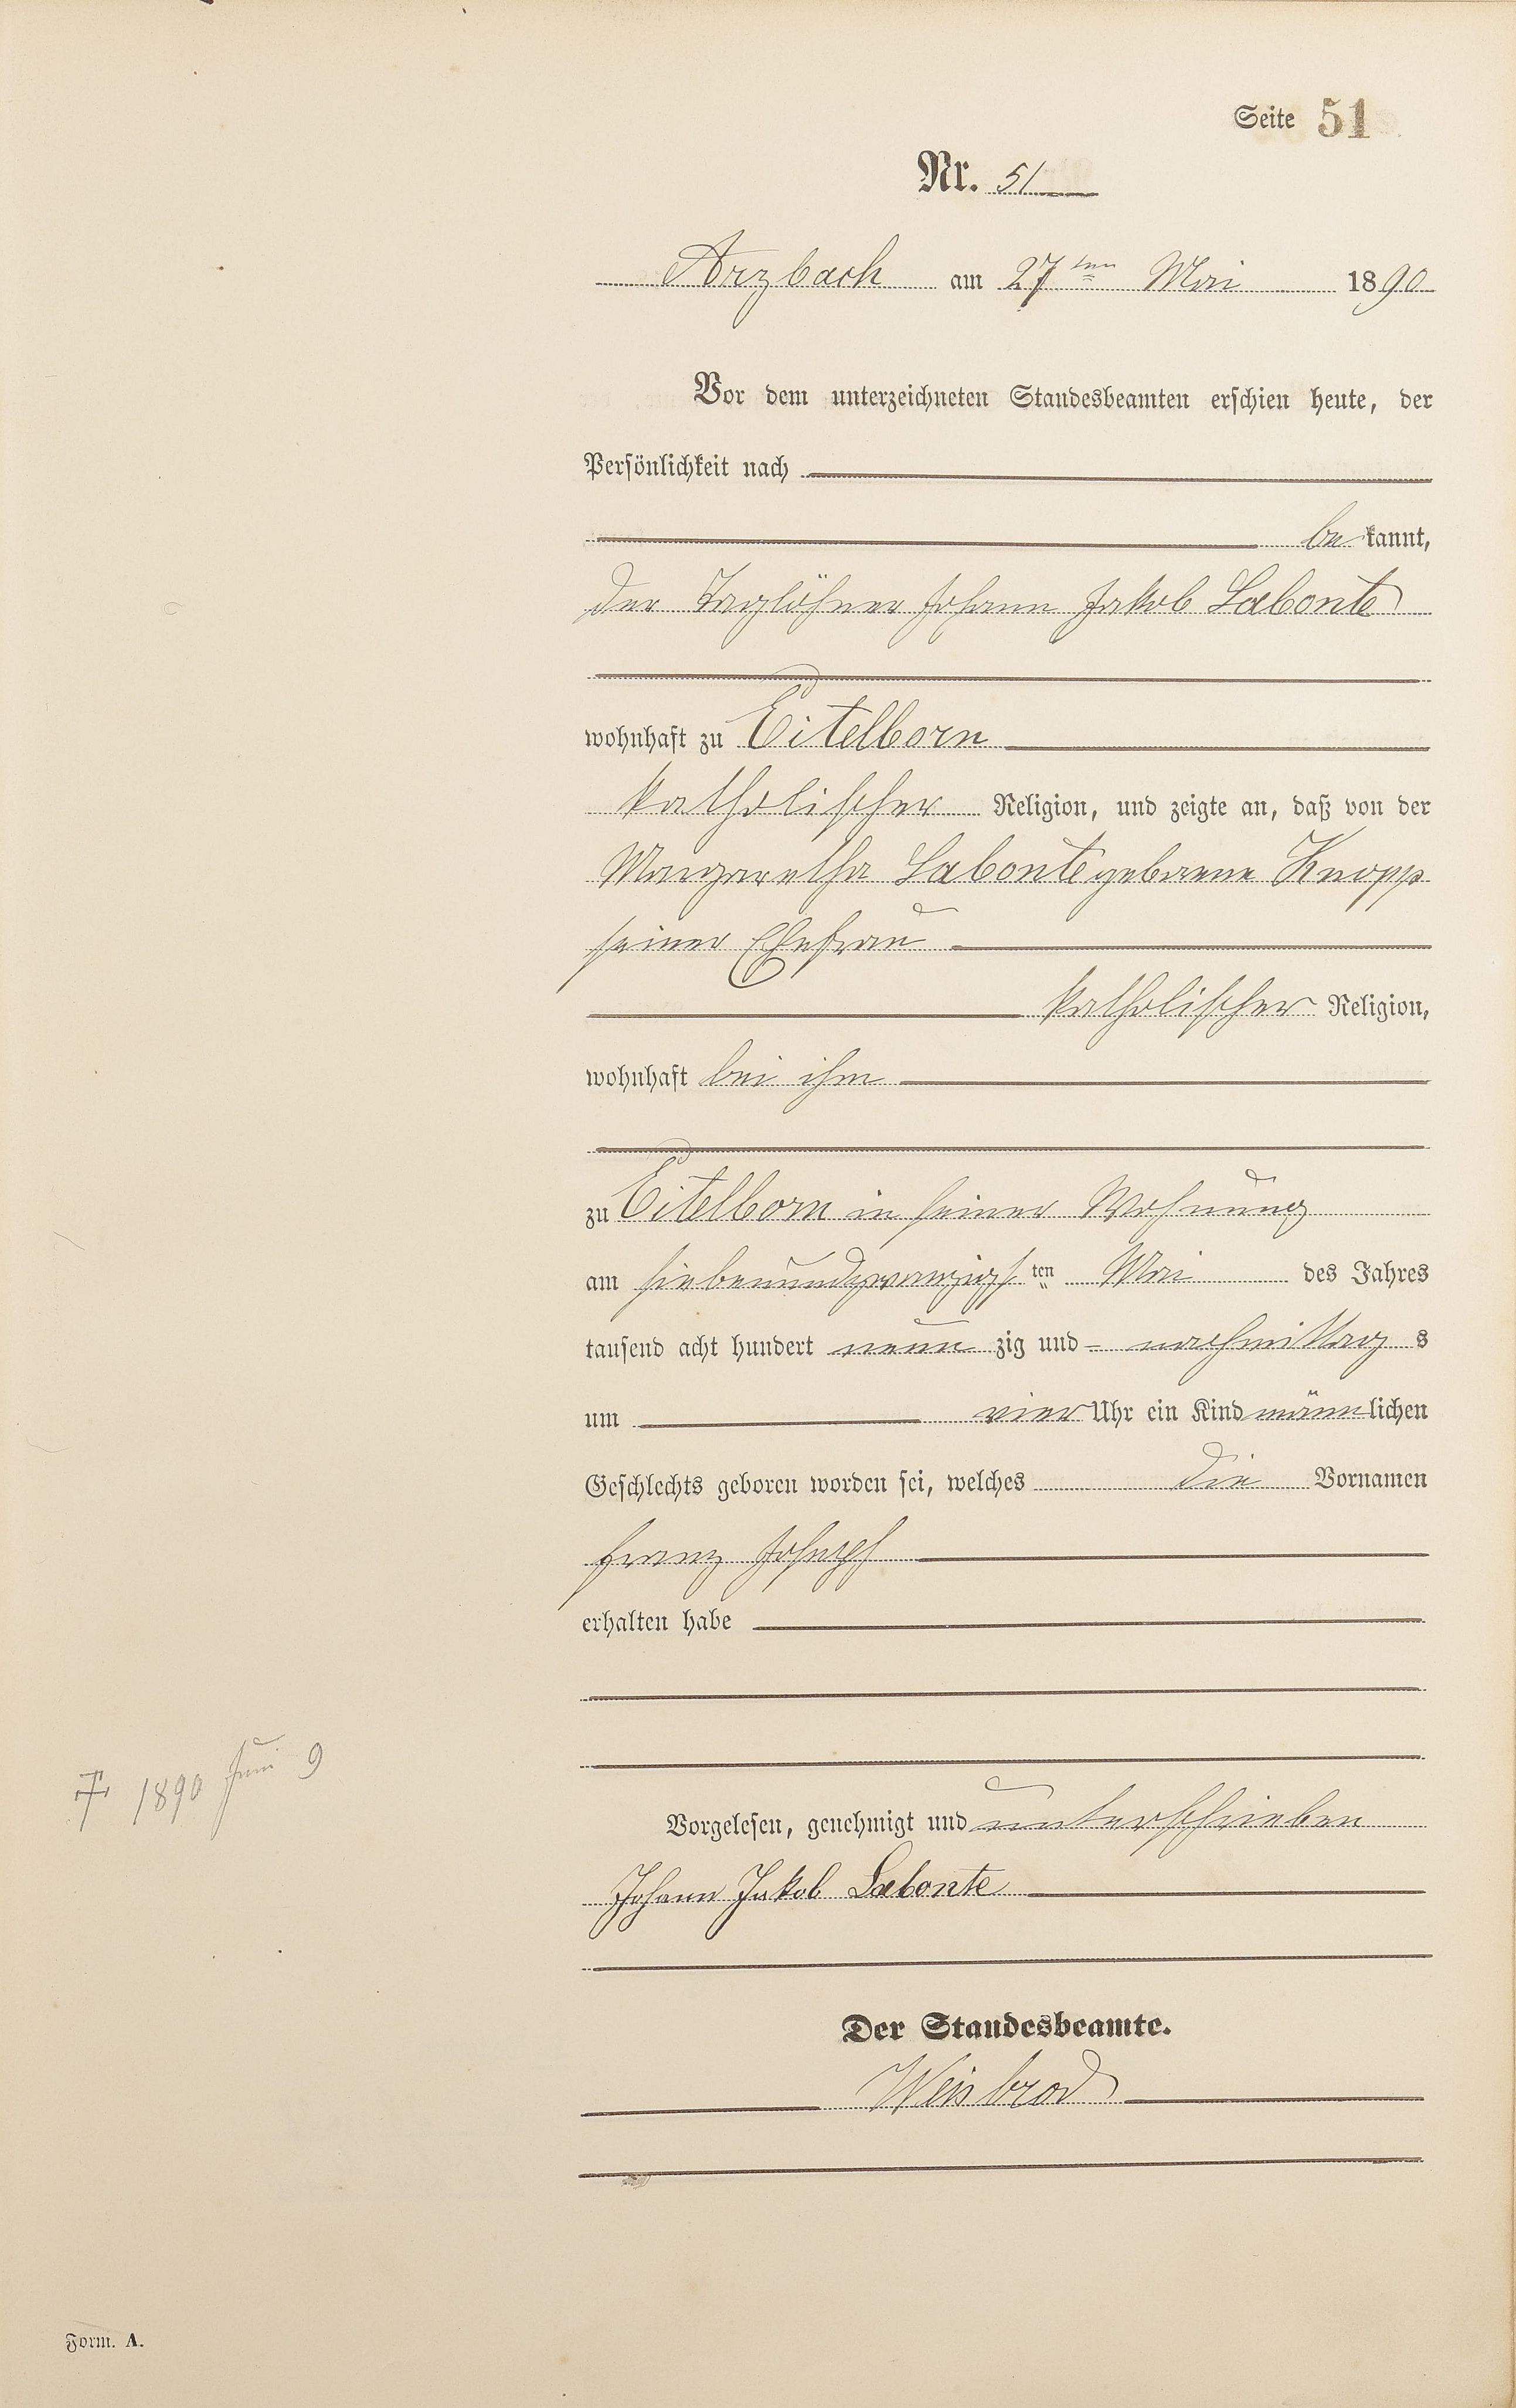 Seite 51
Nr. 51
Arzbach am 27ten Mai 1890
Vor dem unterzeichneten Standesbeamten erschien heute, der
Persönlichkeit nach
be kannt,
der Taglöhner Johann Jakob Labonte
wohnhaft zu Eitelborn
katholischer Religion, und zeigte an, daß von der
Margaretha Labonte geborene Knopp
seiner Ehefrau
katholischer Religion,
wohnhaft bei ihm
zu Eitelborn in seiner Wohnung
am siebenundzwanzigsten Mai des Jahres
tausend acht hundert neun zig und - nachmittag s
um vier Uhr ein Kind männlichen
Geschlechts geboren worden sei, welches die Vornamen
Franz Joseph
erhalten habe
† 1890 Juni 9
Vorgelesen, genehmigt und unterschrieben
Johann Jakob Labonte
Der Standesbeamte.
Weisbrod
Form. A.